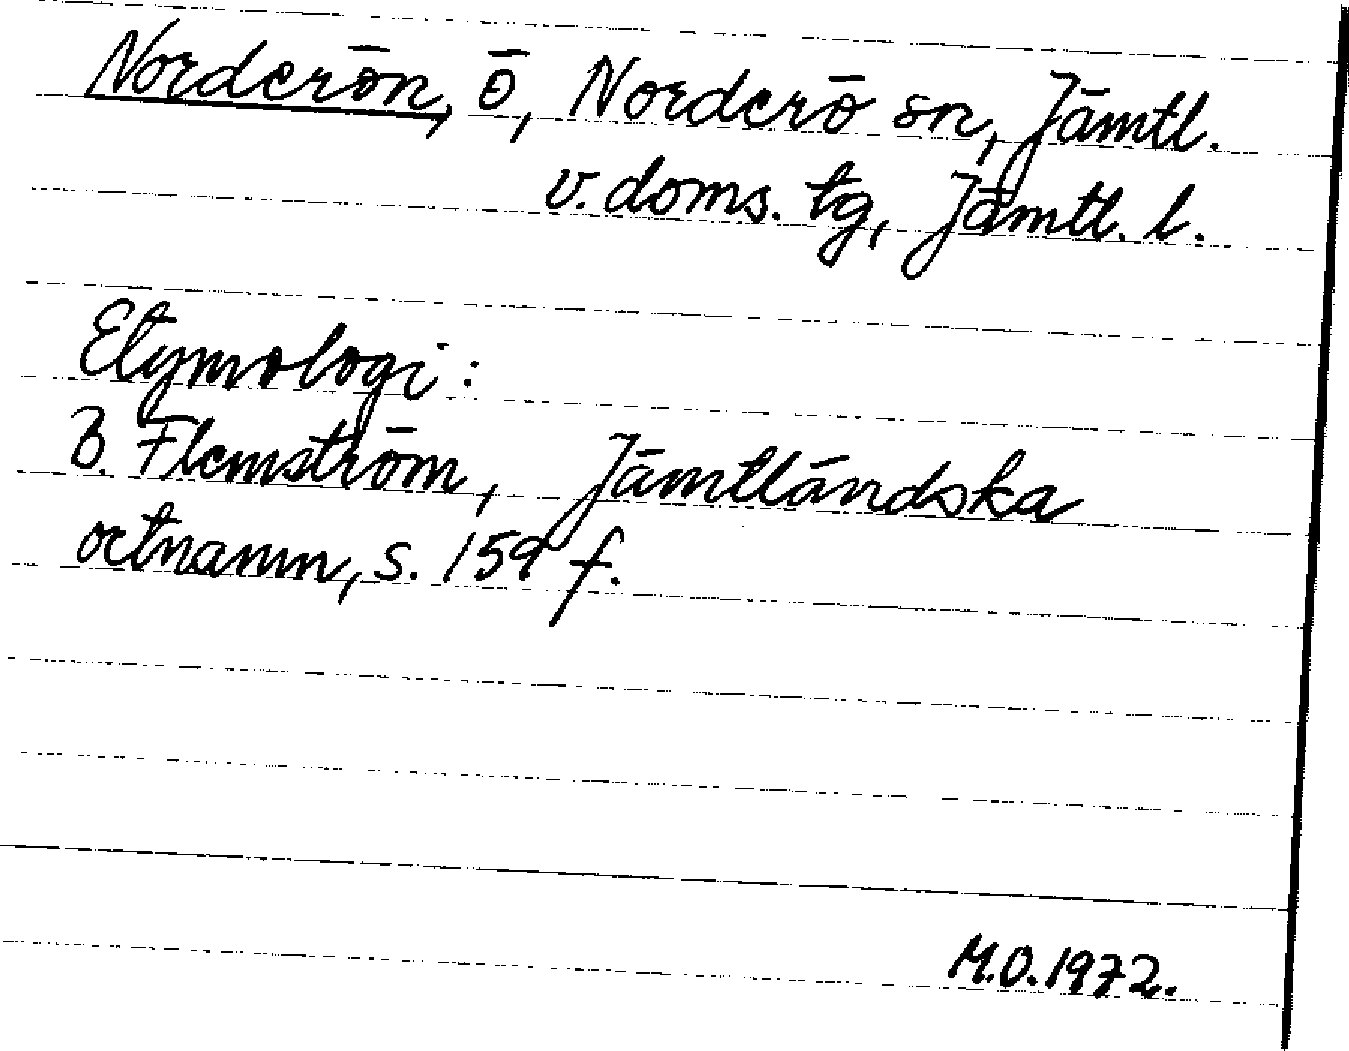 Norderön, ö, Norderö sn, Jämtl.
v. doms. tg, Jämtl. l.
Etymologi:
B. Flemström, Jämtländska
ortnamn, s. 159 f.
M.O. 1972.